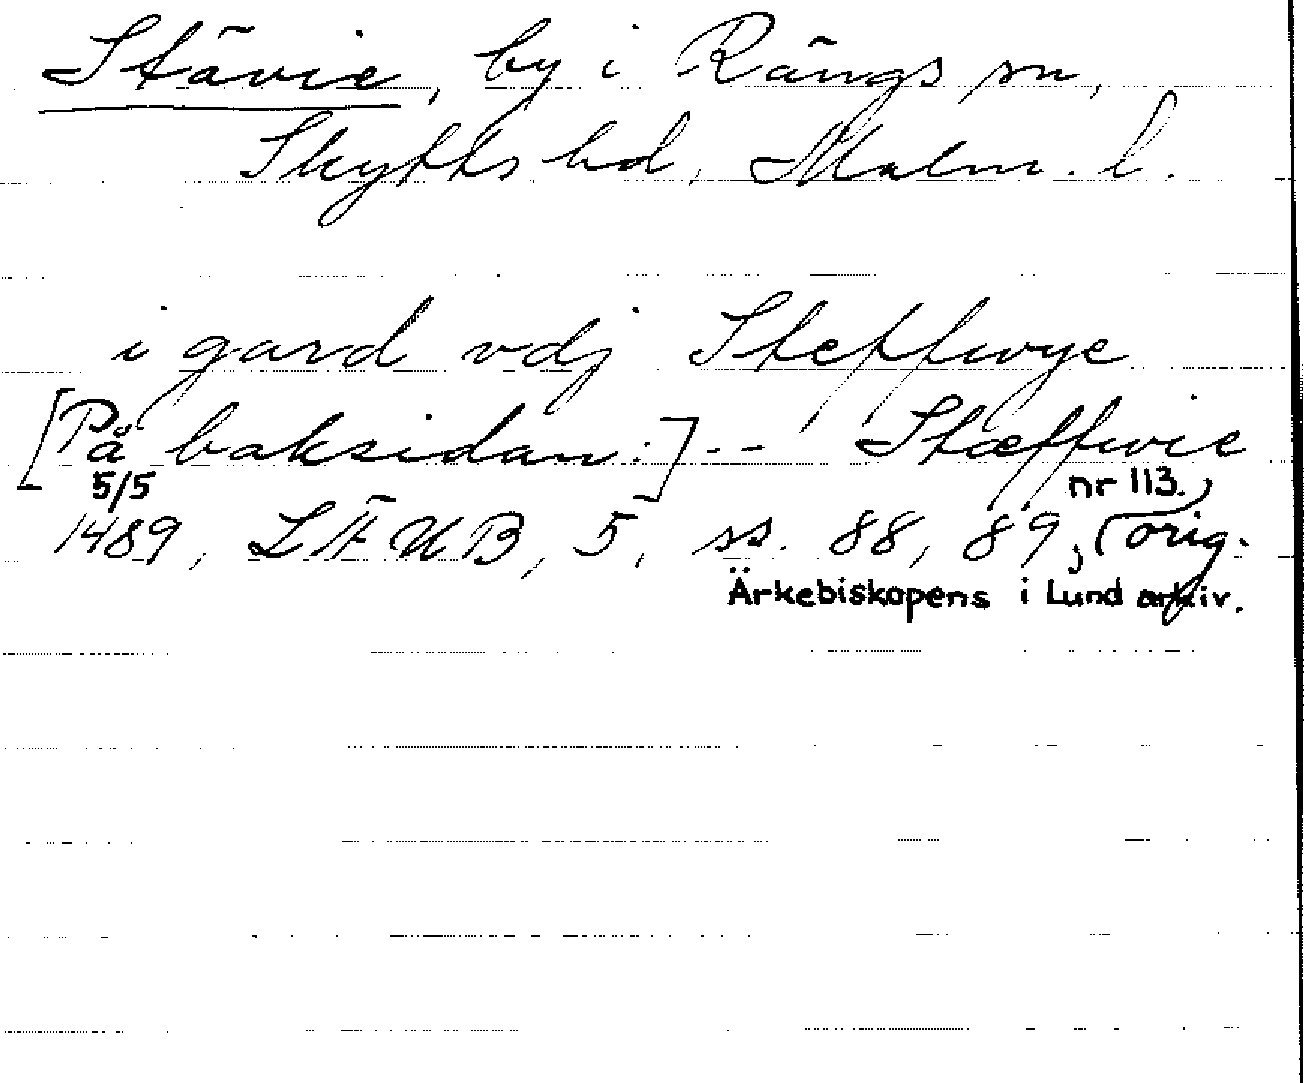 Stävie, by i Rängs sn,
Skytts hd, Malm. l.
i gard vdj Steffwye
[På baksidan:] -- Stæffwie
5/5 nr 113.
1489, LÄUB, 5, ss. 88, 89, (orig.
Ärkebiskopens i Lund arkiv.